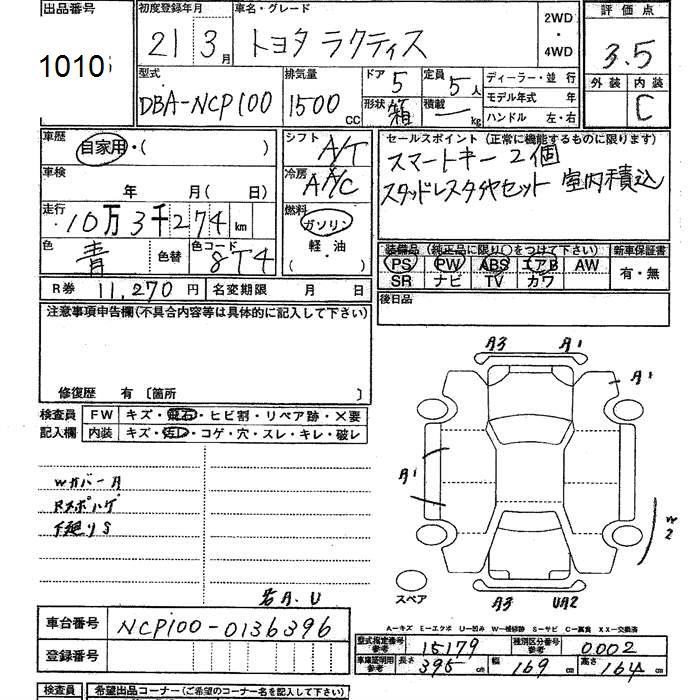 出品番号 初度登録年月 車名・グレード 2WD ・ 4WD 評価点
1010 21 3月 トヨタ ラクティス 3.5
型式 排気量 ドア 5 定員 5人 ディーラー・並行 外装 内装
DBA-NCP100 1500cc 形状 箱 積載 ー kg モデル年式 年 C
ハンドル 左・右
車歴 自家用・( ) シフト A/T セールスポイント (正常に機能するものに限ります)
車検 年 月( 日) 冷房 A/C スマートキー 2個
スタッドレスタイヤセット 室内積込
走行 10万3千274km 燃料 ガソリン・軽油・( )
色 青 色替 色コード 8T4
装備品 (純正品に限り○をつけて下さい) 新車保証書
PS PW ABS エアB AW 有・無
SR ナビ TV カワ
R券 11,270円 名変期限 月 日 後日品
注意事項申告欄(不具合内容等は具体的に記入して下さい)
修復歴 有 〔箇所 〕
検査員 FW キズ・飛石・ヒビ割・リペア跡・×要
記入欄 内装 キズ・汚レ・コゲ・穴・スレ・キレ・破レ
A3 A1
A1
A1
W2
WカバーA
Rスポハゲ
下廻りS
A.U
スペア A3 UA2
A-キズ E-エクボ U-凹み W-補修跡 S-サビ C-腐食 XX-交換済
車台番号 NCP100-0136396
型式指定番号 参考 15179 種別区分番号 参考 0002
登録番号
車庫証明用 参考 長さ 395cm 幅 169cm 高さ 164cm
検査員 希望出品コーナー(ご希望のコーナー名を記入して下さい)